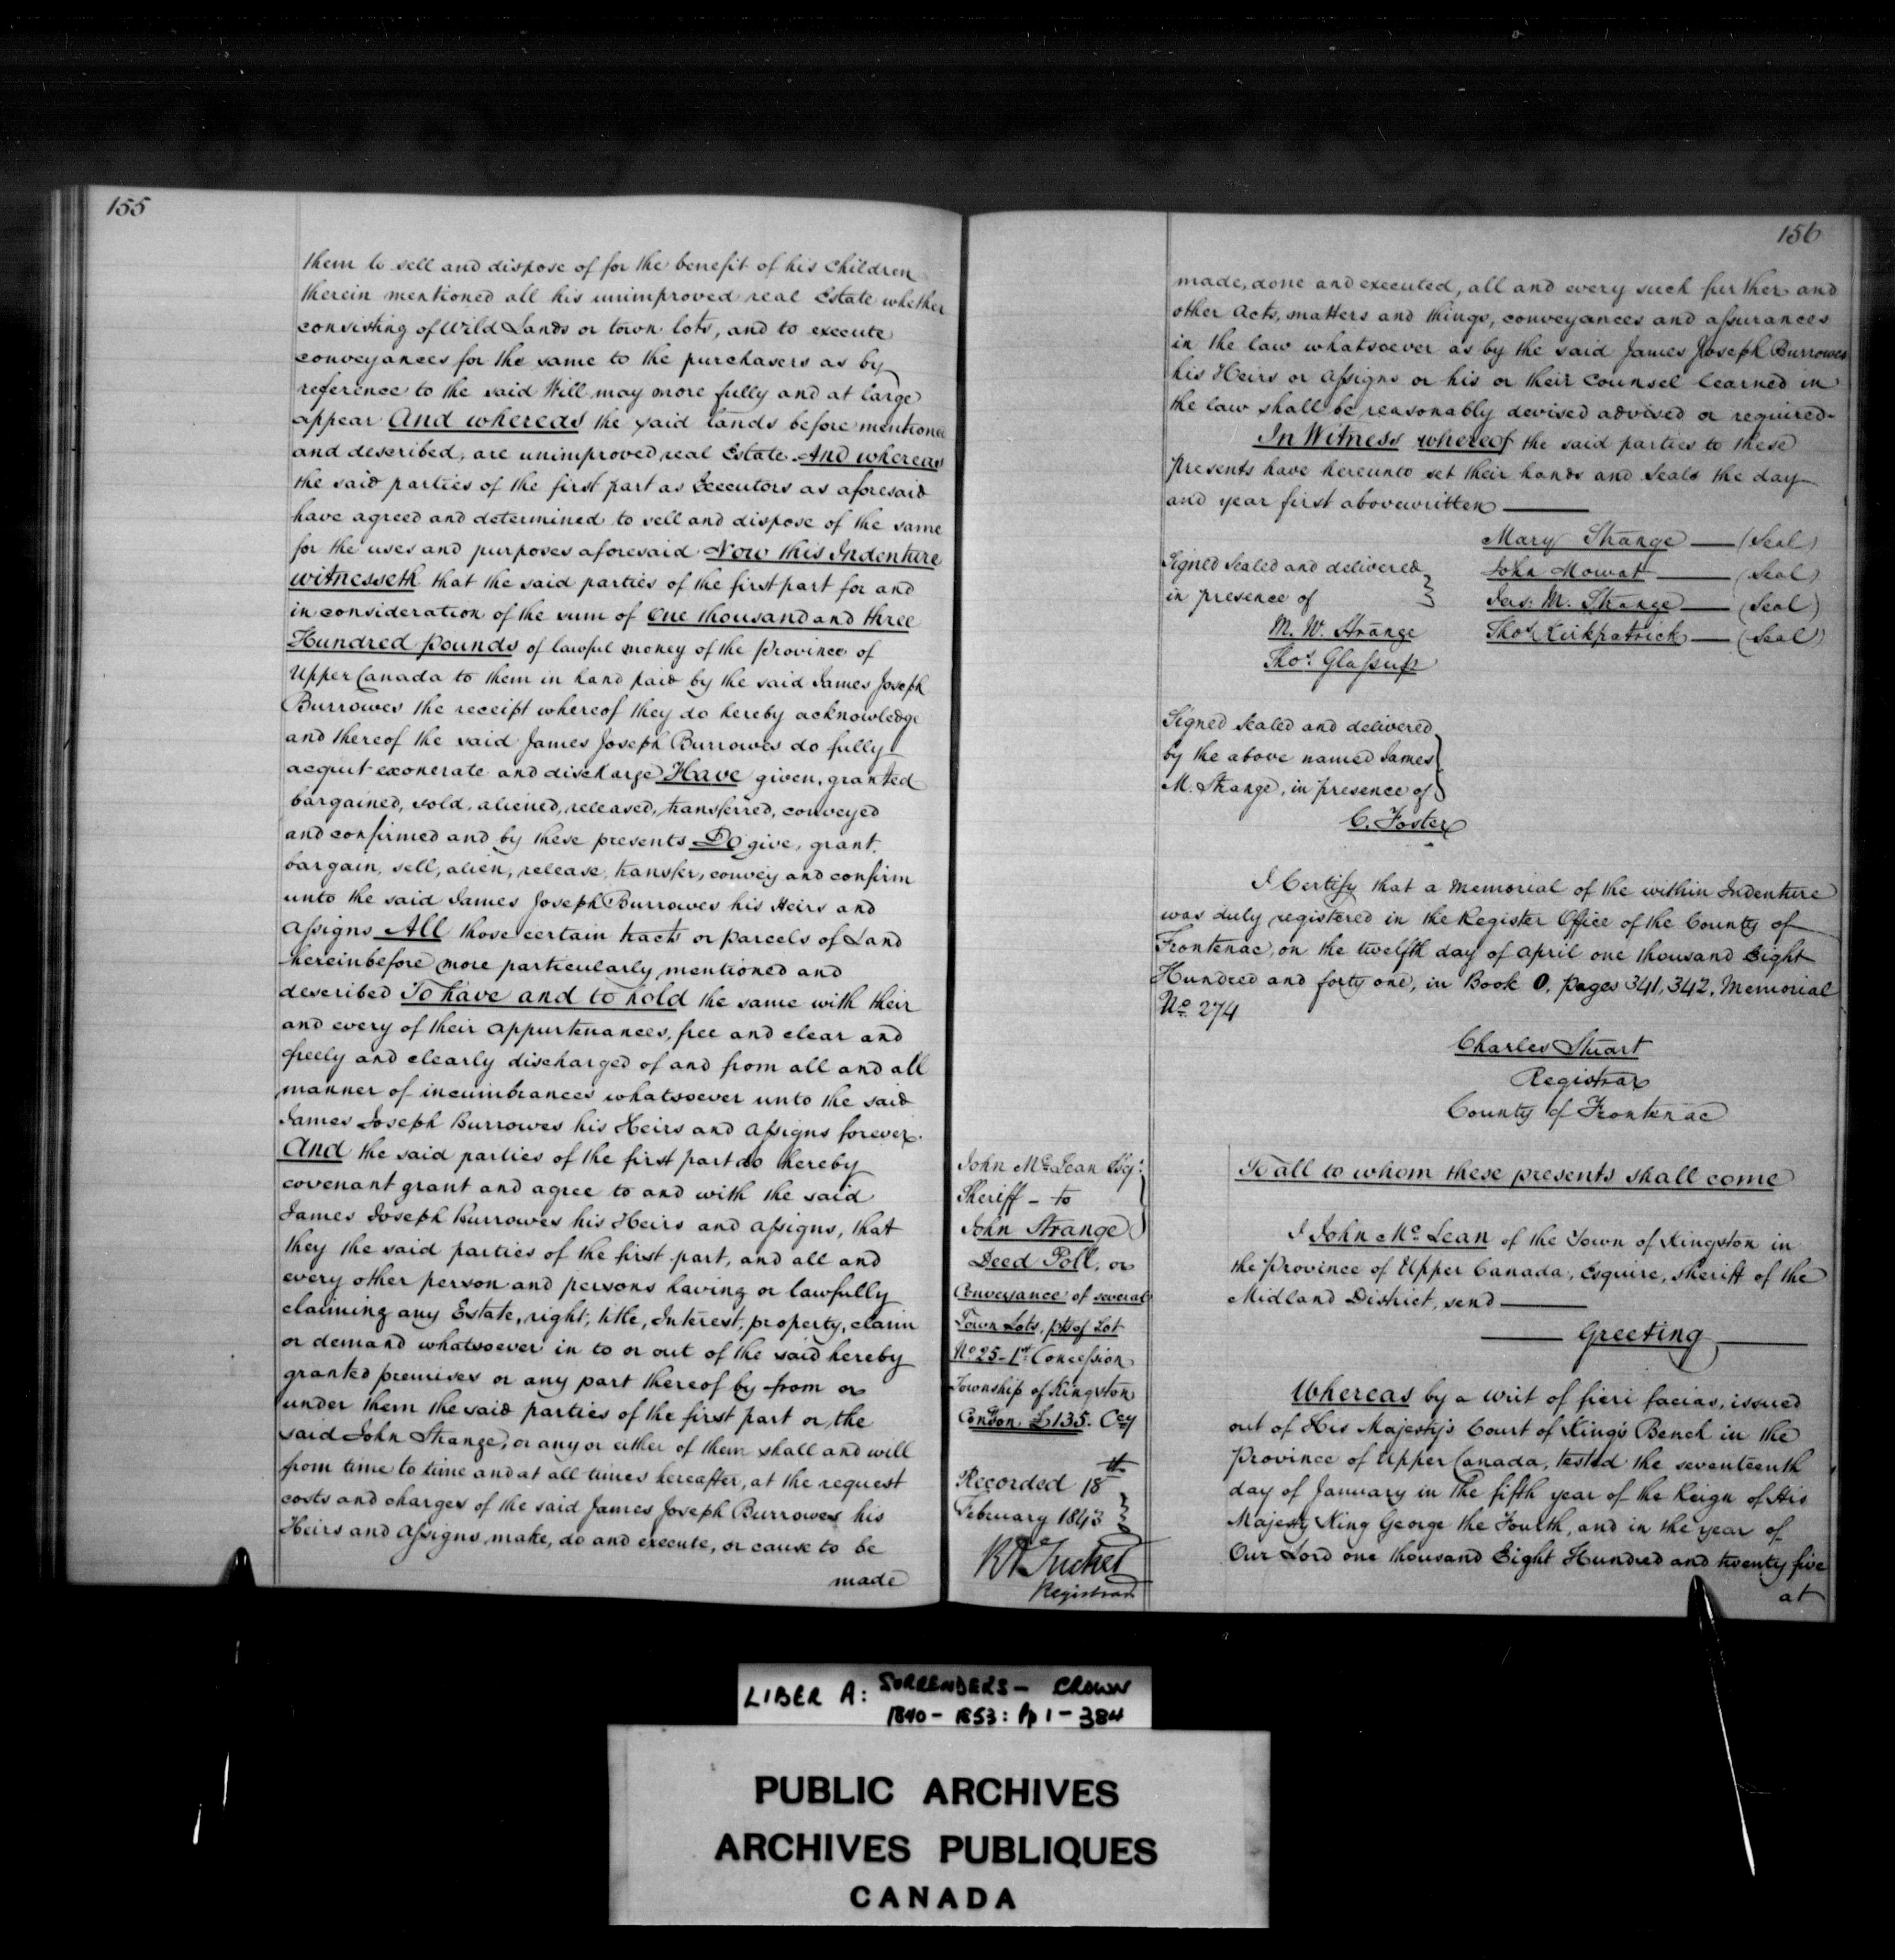 155
them to sell and dispose of for the benefit of his Children
therein mentioned all his unimproved real Estate whether
consisting of Wild Lands or town lots, and to execute
conveyances for the same to the purchasers as by
reference to the said Will may more fully and at large
appear And whereas the said lands before mentioned
and described, are unimproved real Estate And whereas
the said parties of the first part as Executors as aforesaid
have agreed and determined to sell and dispose of the same
for the uses and purposes aforesaid Now this Indenture
witnesseth that the said parties of the first part for and
in consideration of the sum of One thousand and three
Hundred pounds of lawful money of the Province of
Upper Canada to them in hand paid by the said James Joseph
Burrowes the receipt whereof they do hereby acknowledge
and thereof the said James Joseph Burrowes do fully
acquit exonerate and discharge Have given, granted
bargained, sold, aliened, released, transferred, conveyed
and confirmed and by these presents Do give, grant,
bargain, sell, alien, release, transfer, convey and confirm
unto the said James Joseph Burrowes his Heirs and
Assigns All those certain tracts or parcels of Land
hereinbefore more particularly mentioned and
described To have and to hold the same with their
and every of their appurtenances, free and clear and
freely and clearly discharged of and from all and all
manner of incumbrances whatsoever unto the said
James Joseph Burrowes his Heirs and Assigns forever.
And the said parties of the first part do hereby
covenant grant and agree to and with the said
James Joseph Burrowes his Heirs and Assigns, that
they the said parties of the first part, and all and
every other person and persons having or lawfully
claiming any Estate, right, title, Interest, property, claim
or demand whatsoever in to or out of the said hereby
granted premises or any part thereof by from or
under them the said parties of the first part or the
said John Strange, or any or either of them shall and will
from time to time and at all times hereafter, at the request
costs and charges of the said James Joseph Burrowes his
Heirs and Assigns, make, do and execute, or cause to be
made
156
made, done and executed, all and every such further and
other Acts, matters and things, conveyances and assurances
in the law whatsoever as by the said James Joseph Burrowes
his Heirs or Assigns or his or their counsel learned in
the law shall be reasonably devised advised or required.
In Witness whereof the said parties to these
presents have hereunto set their hands and Seals the day
and year first abovewritten
Mary Strange (Seal)
Signed Sealed and delivered John Mowat (Seal)
in presence of Jas. M. Strange (Seal)
M. W. Strange Thos. Kirkpatrick (Seal)
Thos. Glassup
Signed Sealed and delivered
by the above named James
M. Strange, in presence of
C. Foster
I Certify that a Memorial of the within Indenture
was duly registered in the Register Office of the County of
Frontenac, on the twelfth day of April one thousand Eight
Hundred and forty one, in Book O, pages 341, 342, Memorial
No. 274
Charles Stuart
Registrar
County of Frontenac
John McLean Esqr.
Sheriff - to
John Strange
Deed Poll, or
Conveyance of several
Town Lots, pts of Lot
No. 25 - 1st Concession
Township of Kingston
Condon £135. Ccy
Recorded 18th
February 1843
Registrar
To all to whom these presents shall come
I John McLean of the Town of Kingston in
the Province of Upper Canada, Esquire, Sheriff of the
Midland District, send
Greeting
Whereas by a writ of fieri facias, issued
out of His Majesty's Court of King's Bench in the
Province of Upper Canada, tested the seventeenth
day of January in the fifth year of the Reign of His
Majesty King George the Fourth, and in the year of
Our Lord one thousand Eight Hundred and twenty five
at
LIBER A: SURRENDERS - CROWN
1840 - 1853: Pp 1 - 384
PUBLIC ARCHIVES
ARCHIVES PUBLIQUES
CANADA